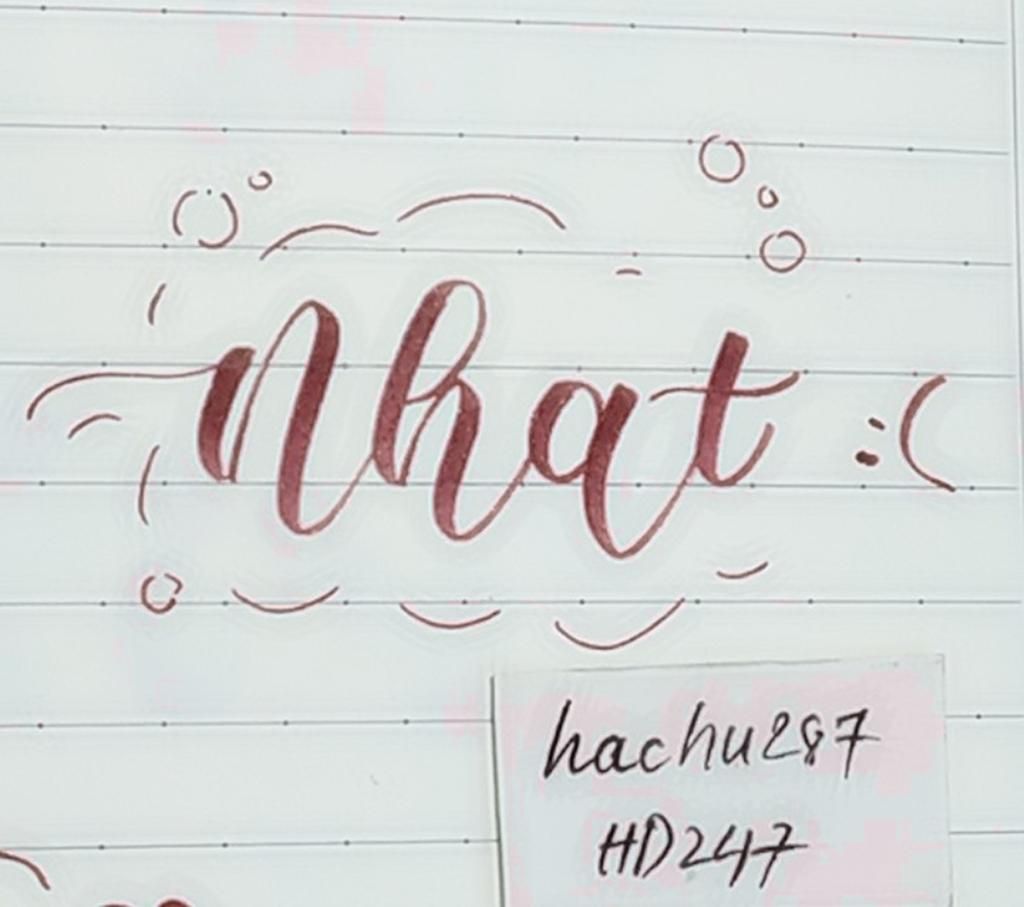 Nhat :(
hachu287
HD247